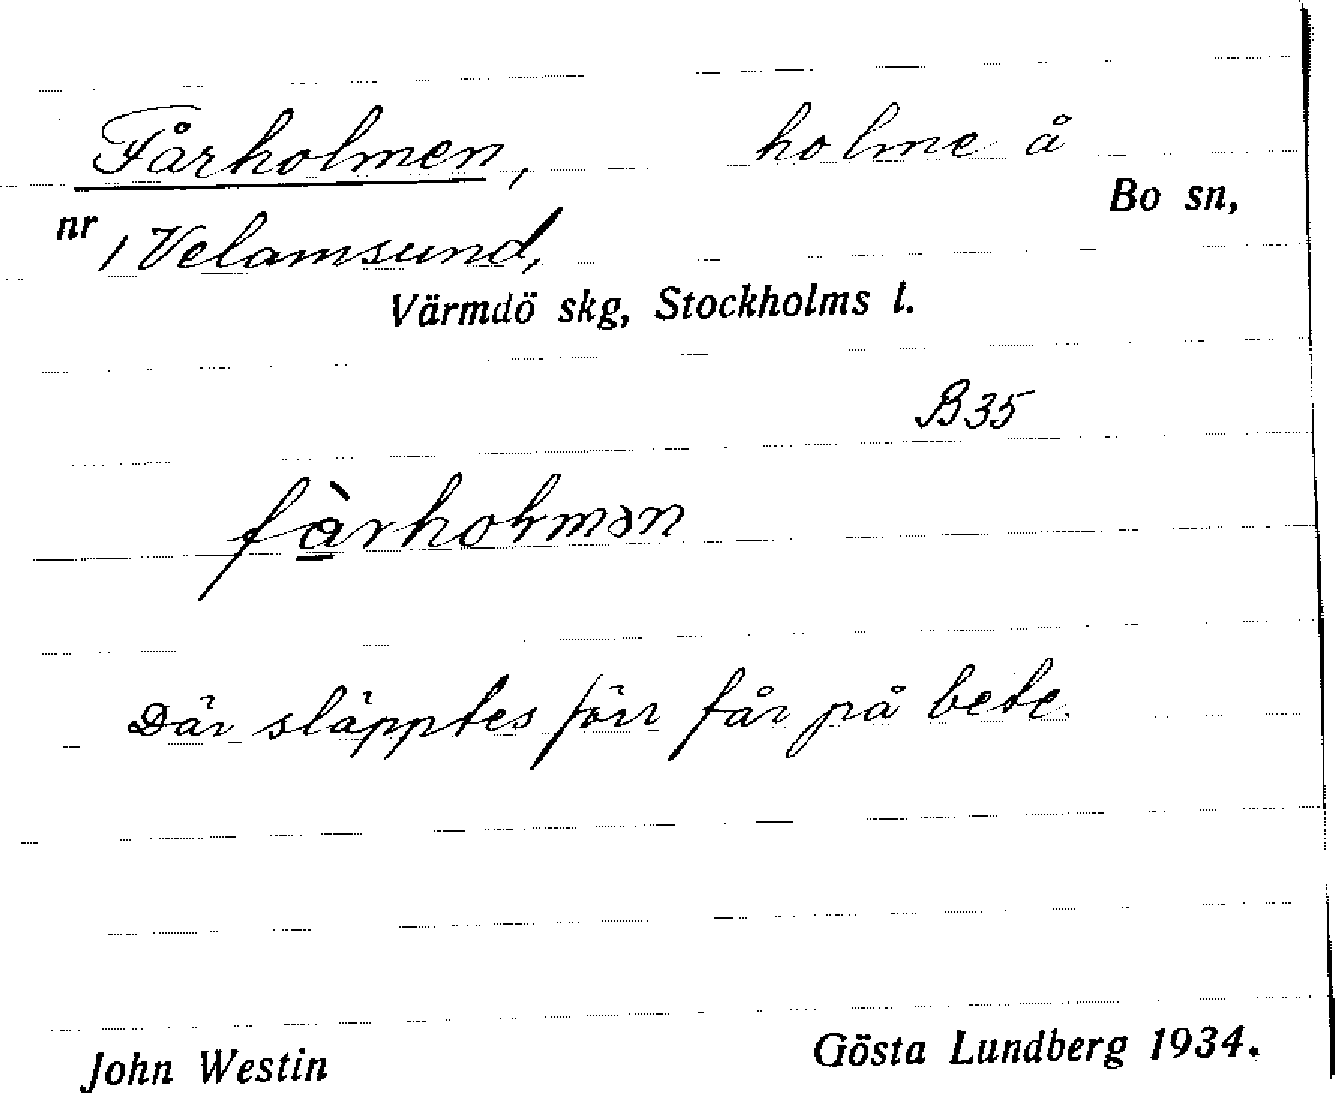 Fårholmen, holme å
Bo sn,
nr 1 Velamsund,
Värmdö skg, Stockholms l.
B35
Där släpptes förr får på bete.
John Westin Gösta Lundberg 1934.